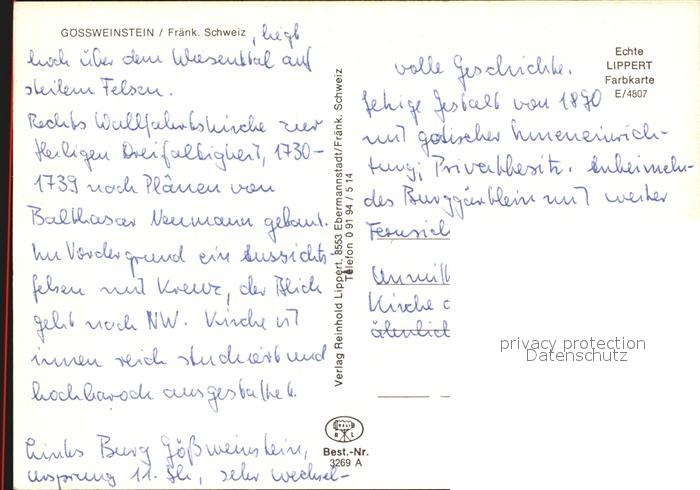 GÖSSWEINSTEIN / Fränk. Schweiz, liegt
hoch über dem Wiesenttal auf
steilem Felsen.
Rechts Wallfahrtskirche zur
Heiligen Dreifaltigkeit, 1730-
1739 nach Plänen von
Balthasar Neumann gebaut.
Im Vordergrund ein Aussichts-
felsen mit Kreuz, der Blick
geht nach NW. Kirche ist
innen reich stuckiert und
hochbarock ausgestattet.
Links Burg Gößweinstein,
Ursprung 11. Jh., sehr wechsel-
volle Geschichte.
Jetzige Gestalt von 1890
mit gotischer Inneneinrich-
tung; Privatbesitz. Anheimeln-
des Burggärtlein mit weiter
Fernsich
Unmitt
Kirche
ähnlich
Echte
LIPPERT
Farbkarte
E/4807
Verlag Reinhold Lippert, 8553 Ebermannstadt/Fränk. Schweiz
Telefon 0 91 94 / 5 14
R L
Best.-Nr.
3269 A
privacy protection
Datenschutz